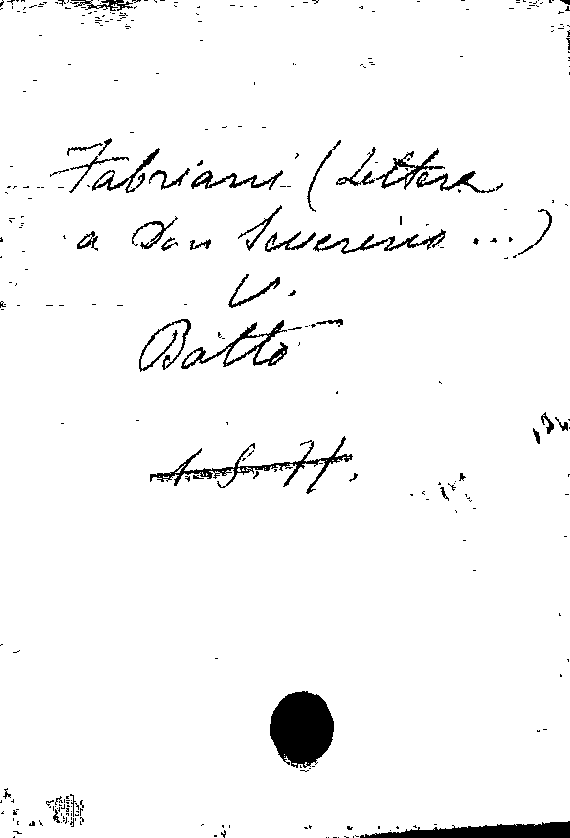 Fabriani (Lettera
a Don Severino ...)
V.
Battò